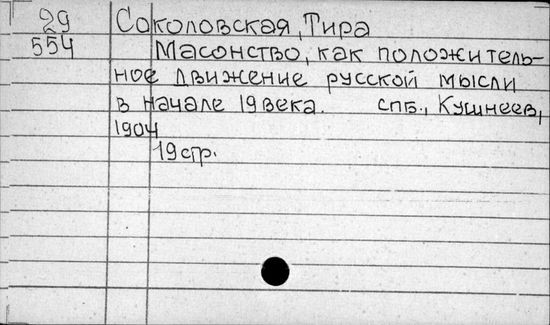 29 Соколовская, Тира
554 Масонство, как положитель-
ное движение русской мысли
в начале 19 века. спб., Кушнеев,
1904
19 стр.